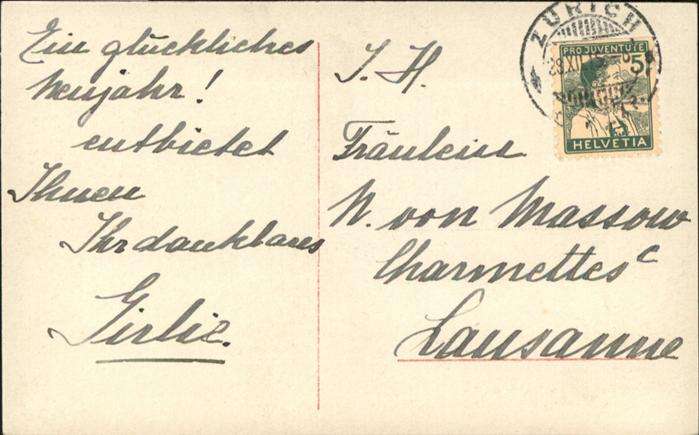 Ein glückliches
Neujahr!
entbietet
Ihnen
Ihr dankbares
Girlie.
I. H.
Fräulein
N. von Massow
Charmettes c
Lausanne
ZÜRICH
PRO JUVENTUTE
5
HELVETIA